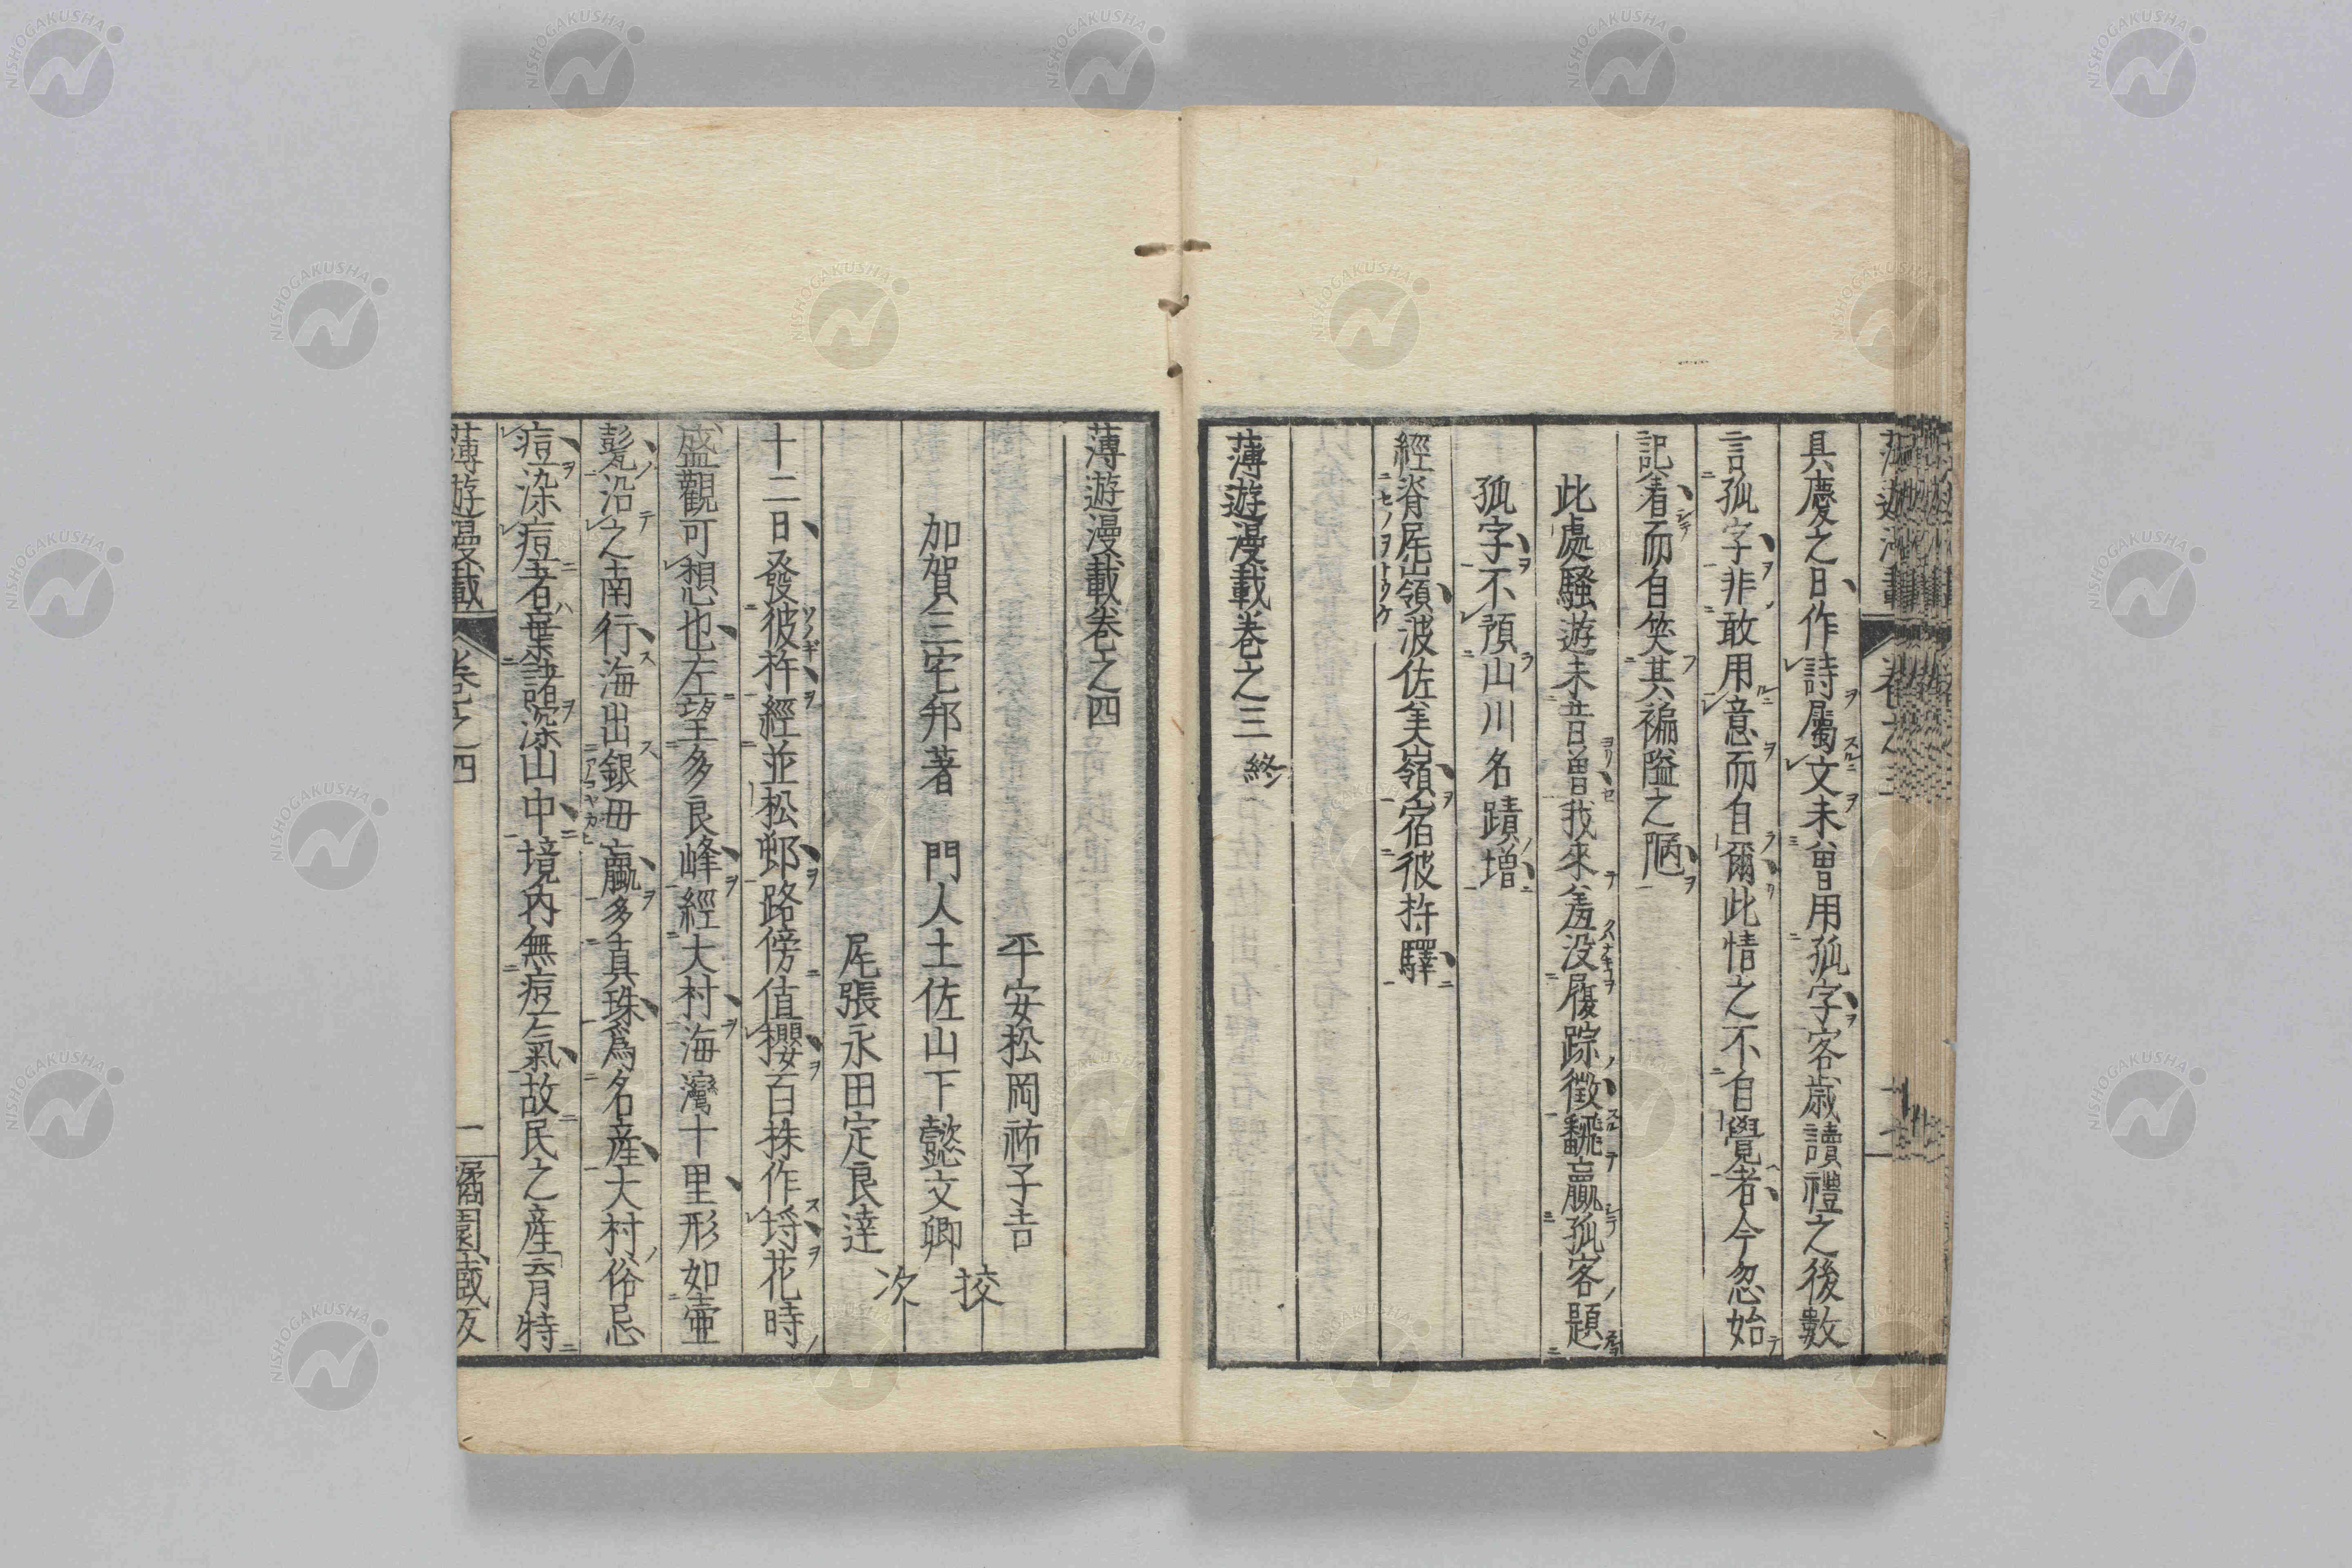 具慶之日作詩屬文未曽用孤字客歳讀禮之後數
言孤字非敢用意而自爾此情之不自覺者今忽始
記着而自笑其褊隘之陋
此處騷遊未昔曽我來羞没履踪徴翻贏孤客題
孤字不預山川名蹟增
經脊屈嶺波佐美嶺宿彼杵驛
薄遊漫載巻之三 終
薄遊漫載巻之四
平安松岡祐子吉
加賀三宅邦著 門人土佐山下懿文卿 挍
尾張永田定良達 次
十二日發彼杵經並松郷路傍值櫻百株作埒花時
盛觀可想也左望多良峰經大村海灣十里形如壷
甃沿之南行海出銀毋蠃多真珠爲名産大村俗忌
痘染痘者棄諸深山中境内無痘氣故民之産云月特
薄遊漫載 巻之四 一 園藏版
NISHOGAKUSHA